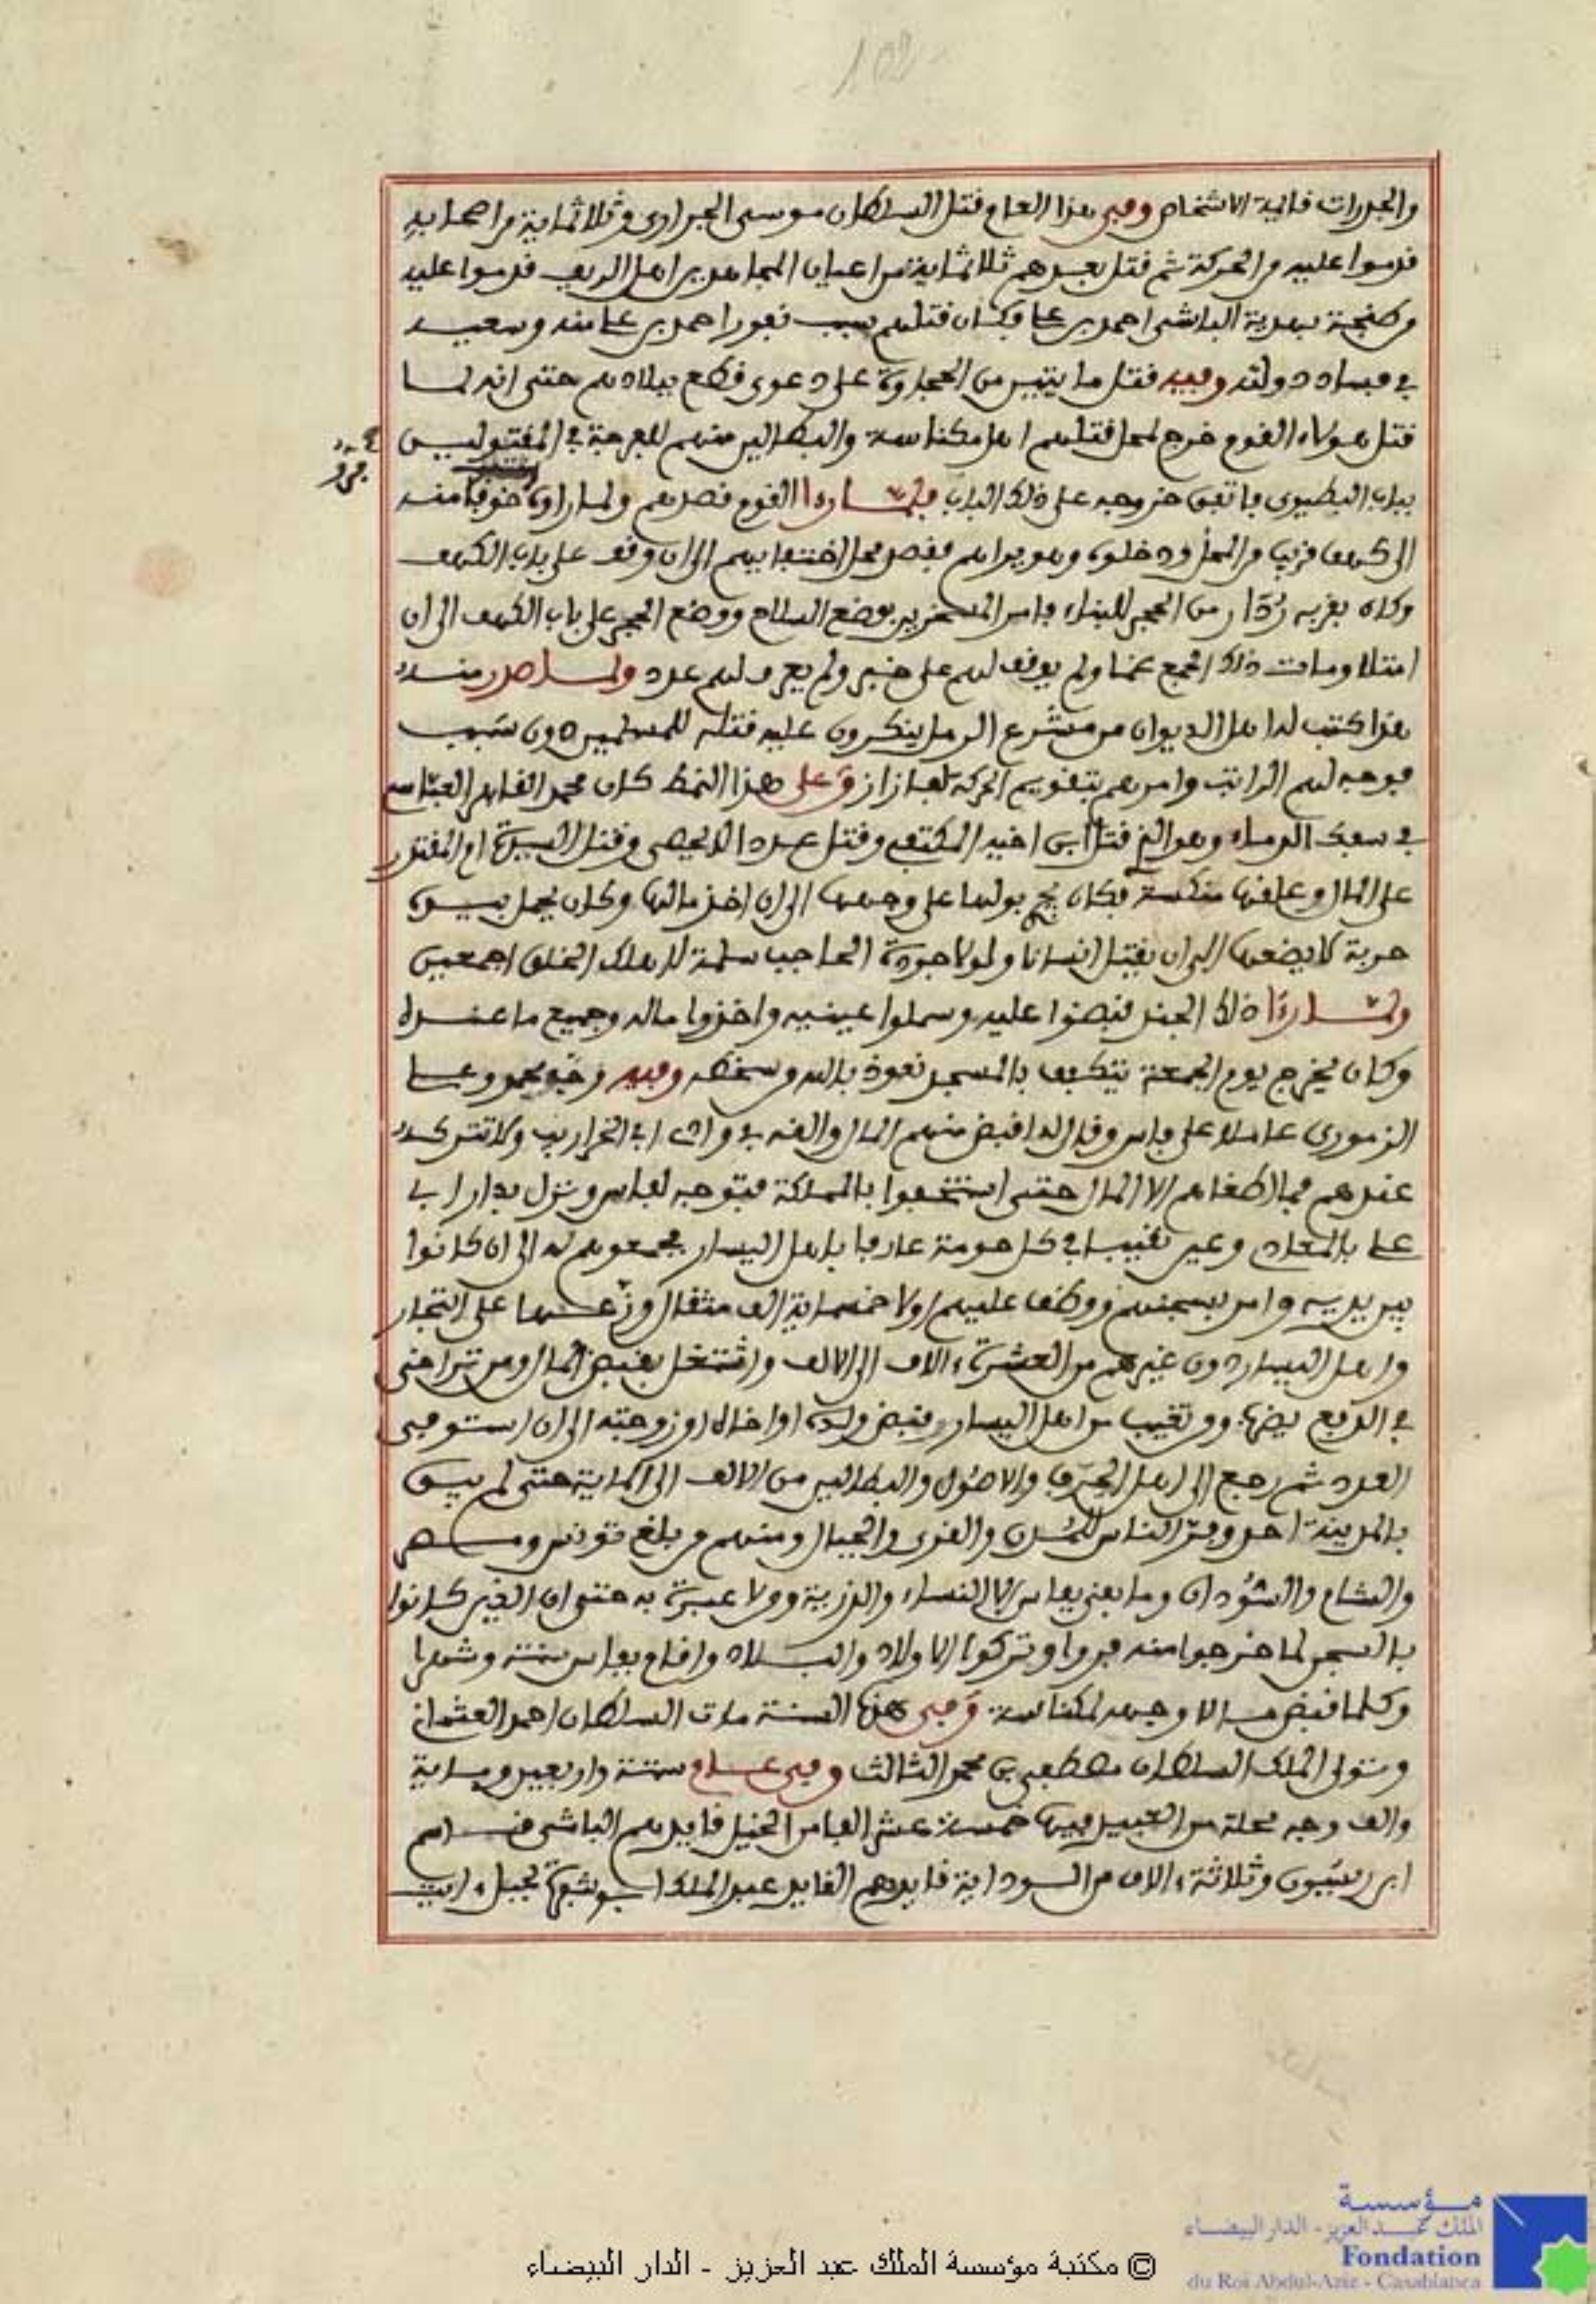 102
والجدرات قائمة الاشخاص وفى هذا العام قتل السلطان موسى الجرارى وثلاثماية من اصحابه
قدموا عليه من الحركة ثم قتل بعدهم ثلاثماية من اعيان المجاهدين اهل الريف قدموا عليه
من طنجة بهدية الباشى احمد بن على وكان قتلهم سبب نفور احمد بن على منه وسعيه
فى فساد دولته وفيه قتل مايتين من الحجاوة على دعوى قطع ببلادهم حتى انه لما
قتل هولاء القوم خرج لمحل قتلهم اهل مكناسة والبطالين منهم للفرجة فى المقتولين
بباب البطيوى فاتفق خروجه على ذلك الباب فلما راا القوم قصدهم ولما راوه خوفا منه
الى كهف قريب من المحل ودخلوه وهو يراهم فقصد محل اختفايهم الى ان وقف على باب الكهف
وكان بقربه ركام من الحجر للبناء فامر المسخرين بوضع السلاح ووضع الحجر على باب الكهف الى ان
امتلا ومات ذلك الجمع غما ولم يوقف لهم على خبر ولم يعرف لهم عدد ولما صدر منه
هذا كتب له اهل الديوان من مشرع الرمل ينكرون عليه قتله للمسلمين دون سبب
فوجه لهم الراتب وامرهم بتقويم الحركة لفازاز وعلى هذا النمط كان محمد القاهر العباسى
فى سفك الدماء وهو الذى قتل ابن اخيه المكتفى وقتل عددا لا يحصى وقتل السيدة ام المقتدر
على المال وعلقها منكسة فكان يجرى بولها على وجهها الى ان اخذ مالها وكان يحمل بيده
حربة لا يضعها الى ان يقتل انسانا ولولا جودة الحاجب سلامة لاهلك الخلق اجمعين
ولما راا ذلك الجند قبضوا عليه وسملوا عينيه واخذوا ماله وجميع ما عنده
وكان يخرج يوم الجمعة يتكفف بالمسجد نعوذ بالله من سخطه وفيه وجه حمدو على
الزمورى عاملا على فاس وقال له اقبض منهم المال والقه فى واد ابى الخراريب ولا تتركه
عندهم فما اطغاهم الا المال حتى استخفوا بالمملكة فتوجه لفاس ونزل بدار ابى
على بالمعادى وعين نقيبا فى كل حومة عارفا باهل اليسار يجمعوهم له الى ان كانوا
بين يديه وامر بسجنهم ووظف عليهم اولا خمسماية الف مثقال وزعها على التجار
واهل اليسار دون غيرهم من العشرة ءالاف الى الالف واشتغل بقبض المال ومن تراخى
فى الدفع يضرب ومن تغيب من اهل اليسار يقبض ولده او اخاه او زوجته الى ان استوفى
العدد ثم رجع الى اهل الحرف والاصول والبطالين من الالف الى الماية حتى لم يبق
بالمدينة احد وفر الناس للمدن والقرى والجبال ومنهم من بلغ تونس ومصر
والشام والسودان وما بقى بفاس الا النساء والذرية ومن لا عبرة به حتى ان الذين كانوا
بالسجن لما خرجوا منه فروا وتركوا الاولاد والبلاد واقام بفاس سنة وشهرا
وكلما قبض مالا وجهه لمكناسة وفى هذه السنة مات السلطان احمد العثمانى
وتولى الملك السلطان مصطفى بن محمد الثالث وفى عام ستة واربعين وماية
والف وجه محلة من العبيد فيها خمسة عشر الفا من الخيل قايدهم الباشى قاسم
ابن ريسون وثلاثة ءالاف من السودانية قايدهم القايد عبد الملك ابوشفرة لجبل ءايت
مؤسسة
الملك عبد العزيز - الدار البيضاء
Fondation
du Roi Abdul-Aziz - Casablanca
© مكتبة مؤسسة الملك عبد العزيز - الدار البيضاء